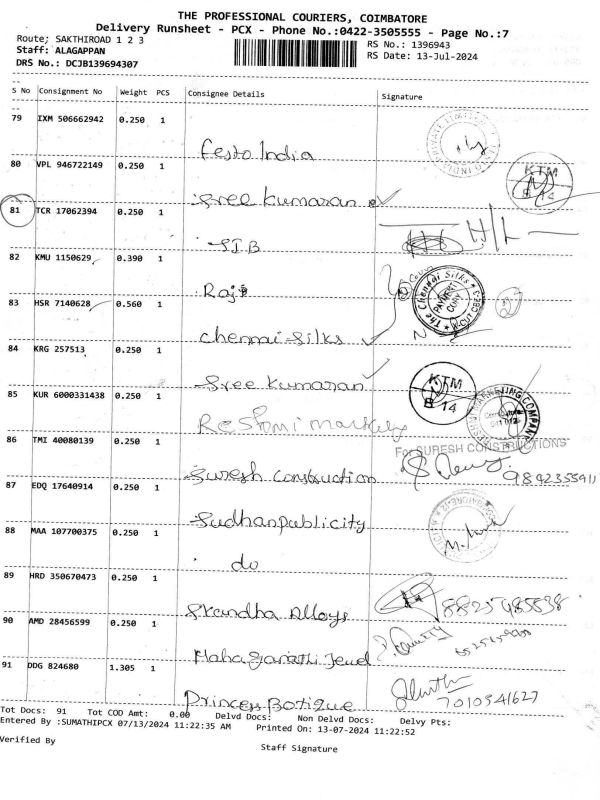 THE PROFESSIONAL COURIERS, COIMBATORE
Delivery Runsheet - PCX - Phone No.:0422-3505555 - Page No.:7
Route; SAKTHIROAD 1 2 3 RS No.: 1396943
Staff: ALAGAPPAN RS Date: 13-Jul-2024
DRS No.: DCJB139694307
S No Consignment No Weight PCS Consignee Details Signature
79 IXM 506662942 0.250 1
Festo India
80 VPL 946722149 0.250 1 KTM 14
Sree kumaran
81 TCR 17062394 0.250 1 H/L
STB
82 KMU 1150629 0.390 1
Raji
83 HSR 7140628 0.560 1 The Chennai Silks
chennai silks
84 KRG 257513 0.250 1
Sree kumaran KTM 14
85 KUR 6000331438 0.250 1
Reshmi
86 TMI 40080139 0.250 1 For SURESH CONSTRUCTIONS
Suresh construction
87 EDQ 17640914 0.250 1
Sudhan publicity
88 MAA 107700375 0.250 1
do
89 HRD 350670473 0.250 1
Skandha Alloys
90 AMD 28456599 0.250 1
Mahaganathi Jewel
91 DDG 824680 1.305 1
Princess Botique 7010341627
Tot Docs: 91 Tot COD Amt: 0.00 Delvd Docs: Non Delvd Docs: Delvy Pts:
Entered By :SUMATHIPCX 07/13/2024 11:22:35 AM Printed On: 13-07-2024 11:22:52
Verified By Staff Signature